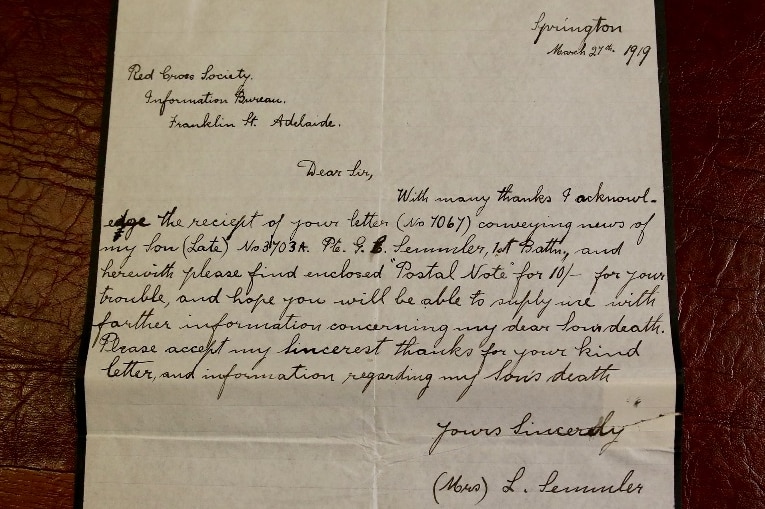 Springton
March 27th 1919
Red Cross Society.
Information Bureau.
Franklin St. Adelaide.
Dear Sir,
With many thanks I acknowl-
edge the reciept of your letter (No 7067) conveying news of
my Son (Late) No 3703A. Pte. G. E. Semmler, 1st Battn, and
herewith please find enclosed "Postal Note" for 10/- for your
trouble, and hope you will be able to suply me with
farther information concerning my dear Sons death.
Please accept my Sincerest thanks for your kind
letter, and information regarding my Son's death
Yours Sincerely
(Mrs) L. Semmler